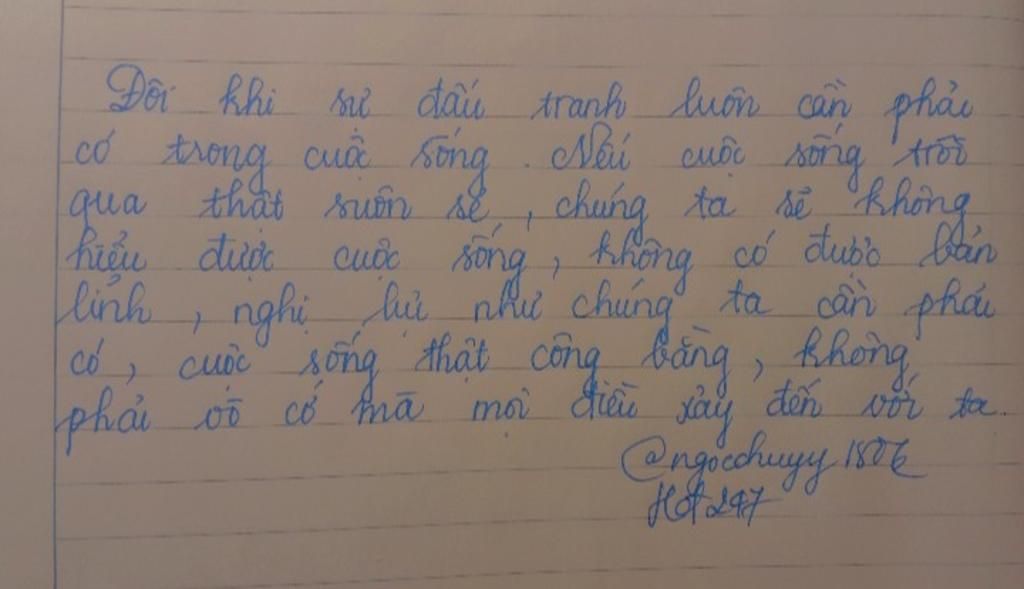 Đôi khi sự đấu tranh luôn cần phải
có trong cuộc sống. Nếu cuộc sống trôi
qua thật suôn sẻ, chúng ta sẽ không
hiểu được cuộc sống, không có được bản
lĩnh, nghị lực như chúng ta cần phải
có, cuộc sống thật công bằng, không
phải vô cớ mà mọi điều xảy đến với ta.
@ngocchuyy
247